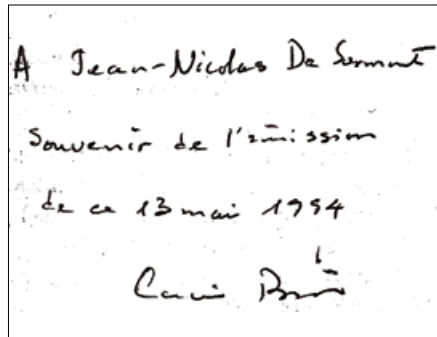 A Jean-Nicolas De Surmont
Souvenir de l'émission
de ce 13 mai 1994